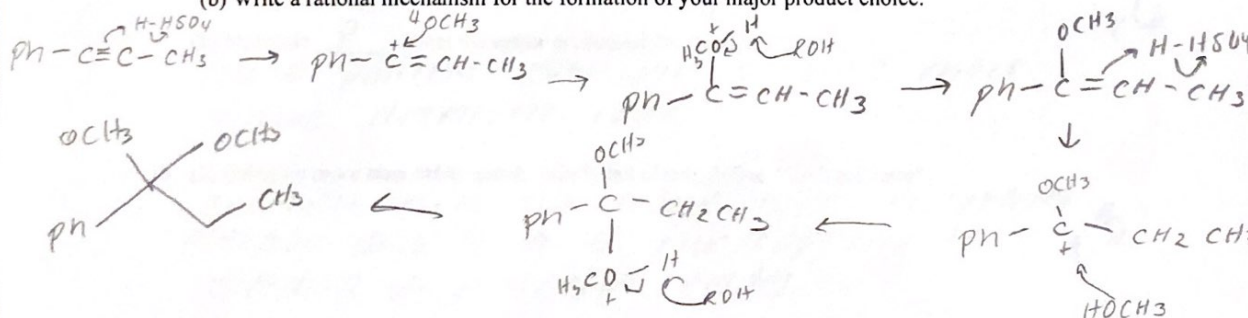 (b) Write a rational mechanism for the formation of your major product choice.
H-HSO4
Ph-C≡C-CH3
HOCH3
Ph-C=CH-CH3
+
+ H
H3CO ROH
Ph-C=CH-CH3
OCH3 H-HSO4
Ph-C=CH-CH3
OCH3
Ph-C-CH2CH3
+
HOCH3
OCH3
Ph-C-CH2CH3
H3CO H
+ ROH
OCH3 OCH3
Ph CH3